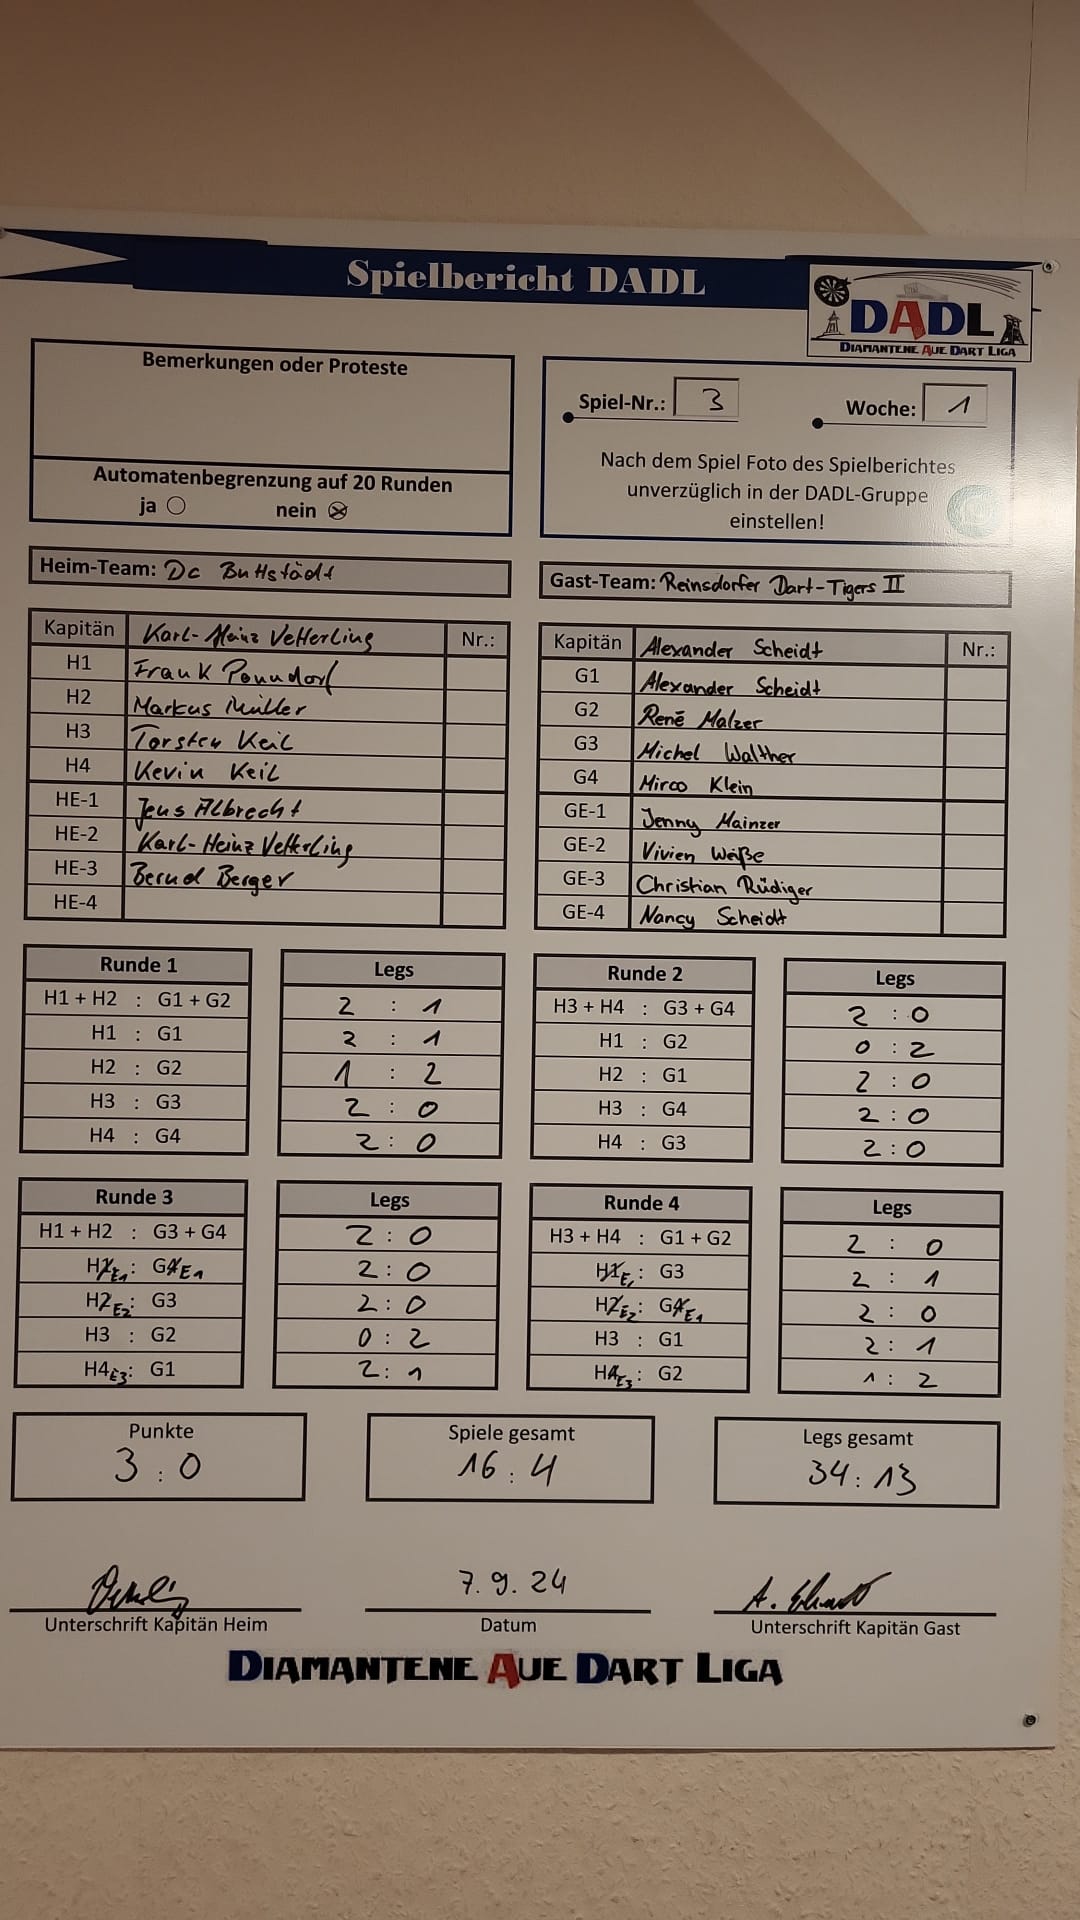 Spielbericht DADL
DADL
DIAMANTENE AUE DART LIGA
Bemerkungen oder Proteste
Automatenbegrenzung auf 20 Runden
ja ○ nein ⊗
Spiel-Nr.: 3 Woche: 1
Nach dem Spiel Foto des Spielberichtes
unverzüglich in der DADL-Gruppe
einstellen!
Heim-Team: Dc Buttstädt
Gast-Team: Reinsdorfer Dart-Tigers II
Kapitän Karl-Heinz Vetterling Nr.:
H1 Frank Ponndorf
H2 Markus Müller
H3 Torsten Keil
H4 Kevin Keil
HE-1 Jens Albrecht
HE-2 Karl-Heinz Vetterling
HE-3 Bernd Berger
HE-4
Kapitän Alexander Scheidt Nr.:
G1 Alexander Scheidt
G2 René Malzer
G3 Michel Walther
G4 Mirco Klein
GE-1 Jenny Mainzer
GE-2 Vivien Weiße
GE-3 Christian Rüdiger
GE-4 Nancy Scheidt
Runde 1 Legs
H1 + H2 : G1 + G2 2 : 1
H1 : G1 2 : 1
H2 : G2 1 : 2
H3 : G3 2 : 0
H4 : G4 2 : 0
Runde 2 Legs
H3 + H4 : G3 + G4 2 : 0
H1 : G2 0 : 2
H2 : G1 2 : 0
H3 : G4 2 : 0
H4 : G3 2 : 0
Runde 3 Legs
H1 + H2 : G3 + G4 2 : 0
H1 E1 : G4 E1 2 : 0
H2 E2 : G3 2 : 0
H3 : G2 0 : 2
H4 E3 : G1 2 : 1
Runde 4 Legs
H3 + H4 : G1 + G2 2 : 0
H1 E1 : G3 2 : 1
H2 E2 : G4 E1 2 : 0
H3 : G1 2 : 1
H4 E3 : G2 1 : 2
Punkte
3 : 0
Spiele gesamt
16 : 4
Legs gesamt
34 : 13
7. 9. 24
A. Scheidt
Unterschrift Kapitän Heim
Datum
Unterschrift Kapitän Gast
DIAMANTENE AUE DART LIGA